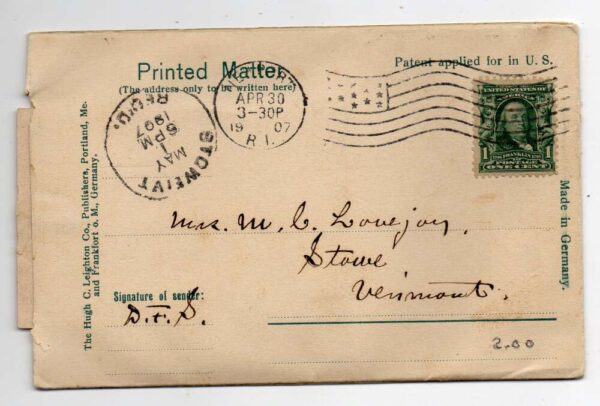 Printed Matter
(The address only to be written here)
Patent applied for in U. S.
APR 30
3-30P
1907
R.I.
STOWE, VT
MAY 1
5PM
1907
REC'D.
UNITED STATES OF
FRANKLIN
1 POSTAGE 1
ONE CENT
Mrs. M. C. Lovejoy,
Stowe
Vermont.
Signature of sender:
D. F. S.
The Hugh C. Leighton Co., Publishers, Portland, Me.
and Frankfort o. M., Germany.
Made in Germany.
2.00